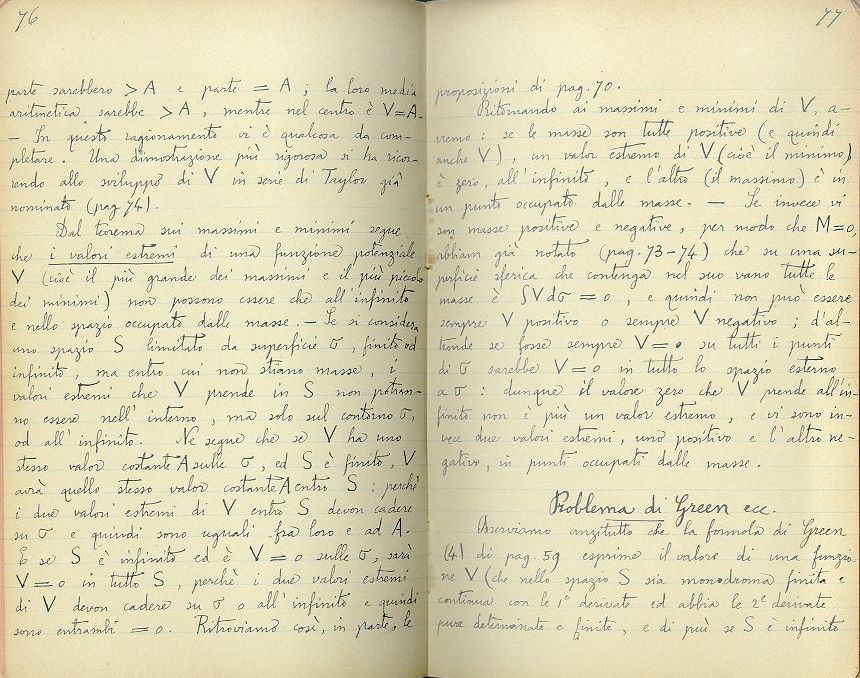 76
parte sarebbero > A e parte = A ; la loro media
aritmetica sarebbe > A , mentre nel centro è V=A.
— In questo ragionamento vi è qualcosa da com-
pletare. Una dimostrazione più rigorosa si ha ricor-
rendo allo sviluppo di V in serie di Taylor già
nominato (pag 74).
Dal teorema sui massimi e minimi segue
che i valori estremi di una funzione potenziale
V (cioè il più grande dei massimi e il più piccolo
dei minimi) non possono essere che all'infinito
e nello spazio occupato dalle masse. — Se si considera
uno spazio S limitato da superficie σ, finito od
infinito, ma entro cui non stiano masse, i
valori estremi che V prende in S non potran-
no essere nell'interno, ma solo sul contorno σ,
od all'infinito. Ne segue che se V ha uno
stesso valor costante A sulle σ, ed S è finito, V
avrà quello stesso valor costante A entro S : perchè
i due valori estremi di V entro S devon cadere
su σ e quindi sono uguali fra loro e ad A.
E se S è infinito ed è V=0 sulle σ, sarà
V=0 in tutto S, perchè i due valori estremi
di V devon cadere su σ o all'infinito e quindi
sono entrambi =0. Ritroviamo così, in parte, le
77
proposizioni di pag. 70.
Ritornando ai massimi e minimi di V, a-
vremo : se le masse son tutte positive (e quindi
anche V), un valor estremo di V (cioè il minimo)
è zero, all'infinito, e l'altro (il massimo) è in
un punto occupato dalle masse. — Se invece vi
son masse positive e negative, per modo che M=0,
abbiam già notato (pag. 73-74) che su una su-
perficie sferica che contenga nel suo vano tutte le
masse è ∫Vdσ = 0, e quindi non può essere
sempre V positivo o sempre V negativo ; d'al-
tronde se fosse sempre V=0 su tutti i punti
di σ sarebbe V=0 in tutto lo spazio esterno
a σ : dunque il valore zero che V prende all'in-
finito non è più un valor estremo, e vi sono in-
vece due valori estremi, uno positivo e l'altro ne-
gativo, in punti occupati dalle masse.
Problema di Green ecc.
Osserviamo anzitutto che la formola di Green
(4) di pag. 59 esprime il valore di una funzio
ne V (che nello spazio S sia monodroma finita e
continua con le 1e derivate ed abbia le 2e derivate
pure determinate e finite, e di più se S è infinito